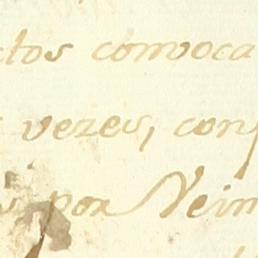 ctos convoca
vezes, conf
por Neim